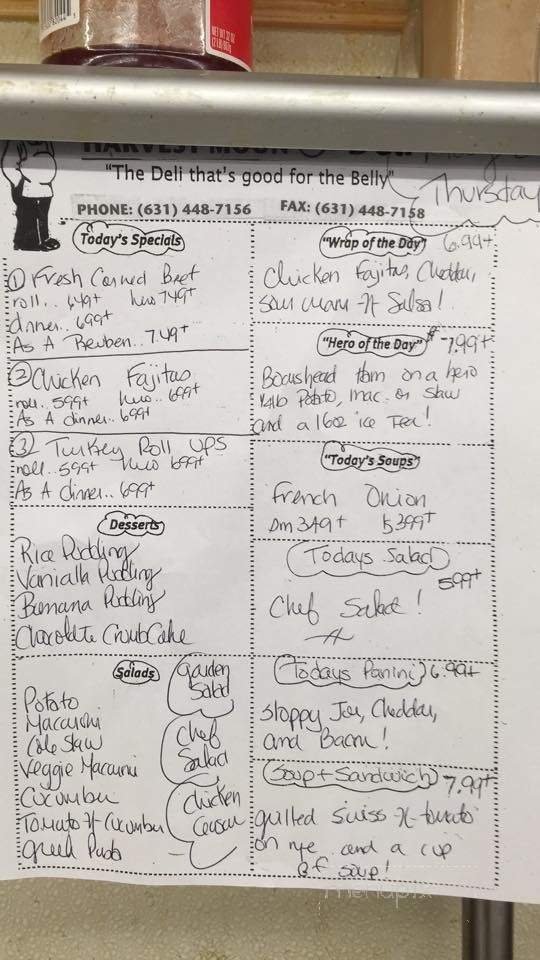 NET WT 32 OZ
(2 LB) 907g
HARVEST MOON
"The Deli that's good for the Belly"
Thursday
PHONE: (631) 448-7156 FAX: (631) 448-7158
Today's Specials
① Fresh Corned Beef
roll.. 649+ hero 749+
dinner.. 699+
As A Reuben.. 7.49+
② Chicken Fajitas
roll.. 599+ hero.. 699+
As A dinner.. 699+
③ Turkey Roll ups
roll.. 599+ hero 699+
As A dinner.. 699+
Desserts
Rice Pudding
Vanialla Pudding
Banana Pudding
Chocolate CrumbCake
Salads
Potato
Macaroni
Cole Slaw
Veggie Macaroni
Cucumber
Tomato + Cucumber
Greek Pasta
Garden
Salad
Chef
Salad
Chicken
Ceasar
"Wrap of the Day" 6.99+
Chicken Fajitas, Cheddar,
sour cream + Salsa!
"Hero of the Day" $7.99+
Boarshead Ham on a hero
1/4lb Potato, mac. or slaw
and a 16oz ice Tea!
"Today's Soups"
French Onion
Sm 349+ L 399+
Todays Salad
599+
Chef Salad!
Todays Panini 6.99+
Sloppy Joe, Cheddar,
and Bacon!
Soup + Sandwich 7.99+
grilled Swiss + tomato
on rye and a cup
of soup!
menupix